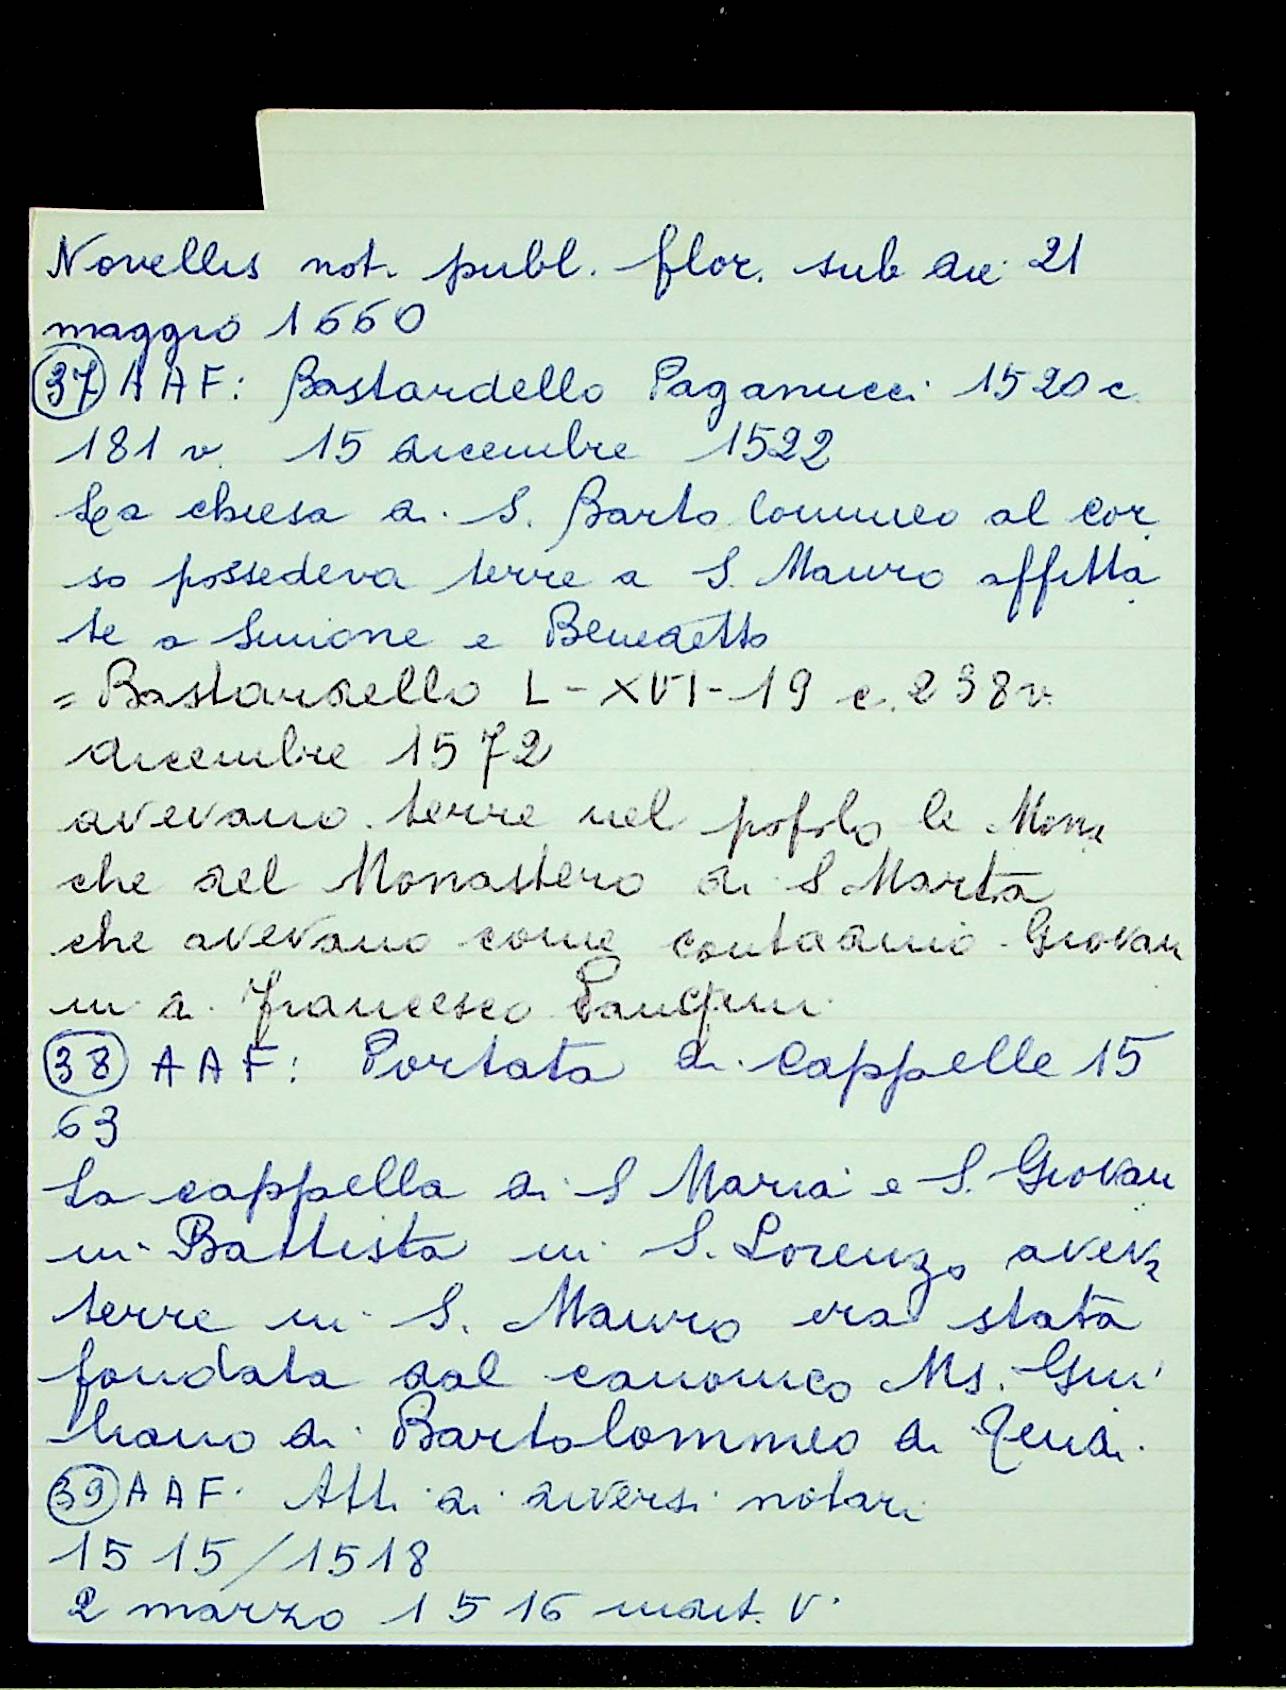 Novellis not. publ. flor. sub die 21
maggio 1660
37 AAF: Bastardello Paganucci 1520 c.
181 v. 15 dicembre 1522
La chiesa di S. Bartolommeo al Cor
so possedeva terre a S. Mauro affitta
te a Simone e Benedetto
= Bastardello L-XVI-19 c. 238v.
dicembre 1572
avevano terre nel popolo le Mona
che del Monastero di S Marta
che avevano come contadino Giovan
ni di Francesco
38 AAF: Portata di Cappelle 15
63
La cappella di S Maria e S. Giovan
ni Battista in S. Lorenzo aveva
terre in S. Mauro era stata
fondata dal canonico Ms. Giu
liano di Bartolommeo di
39 AAF. Atti di diversi notari
1515/1518
2 marzo 1516 indit. V.